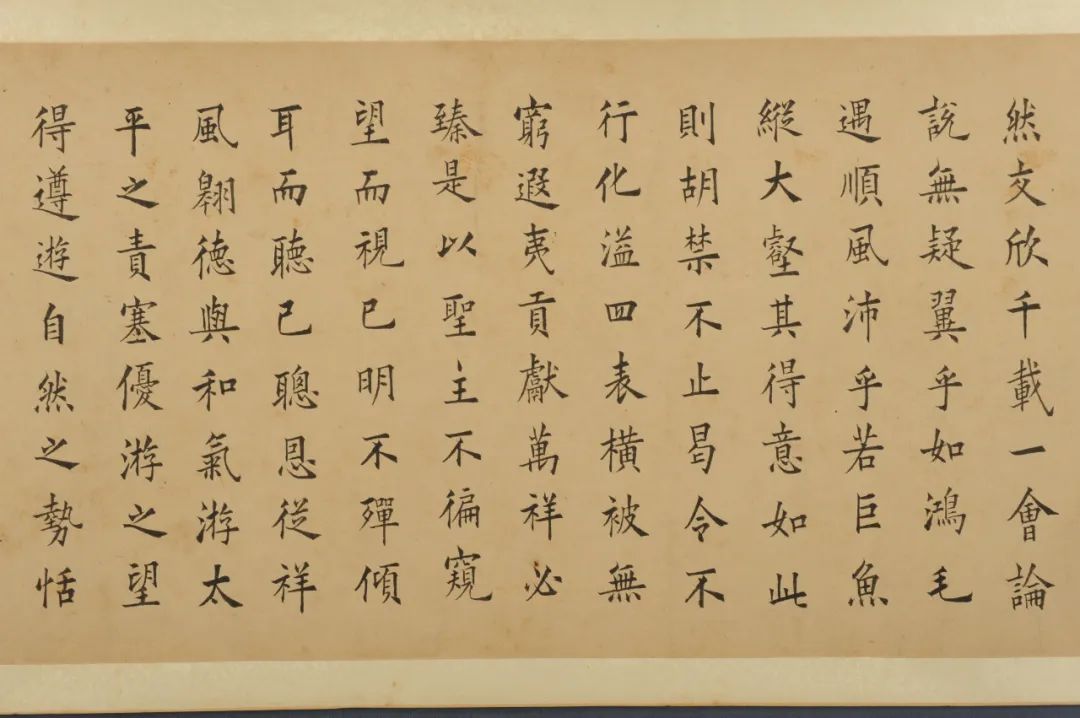 然交欣千載一會論
説無疑翼乎如鴻毛
遇順風沛乎若巨魚
縱大壑其得意如此
則胡禁不止曷令不
行化溢四表橫被無
窮遐夷貢獻萬祥必
臻是以聖主不徧窺
望而視已明不殫傾
耳而聽已聰恩從祥
風翱德與和氣游太
平之責塞優游之望
得遵遊自然之勢恬